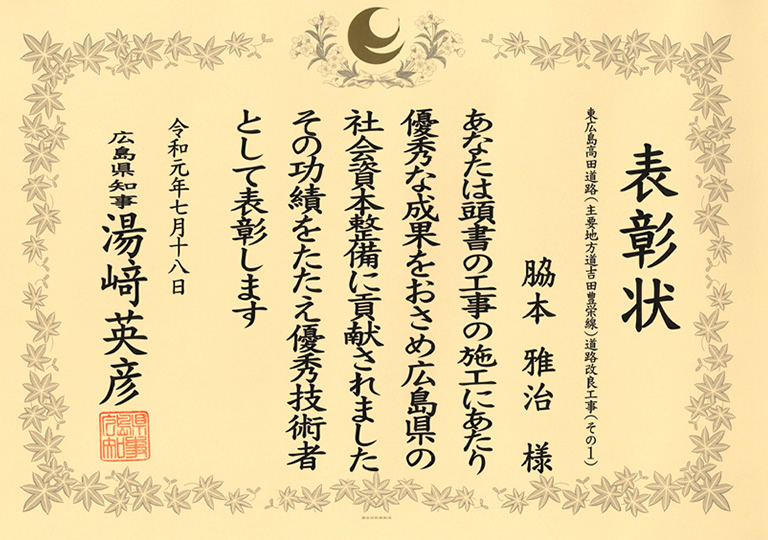 表彰状
東広島高田道路(主要地方道吉田豊栄線)道路改良工事(その1)
脇本 雅治 様
あなたは頭書の工事の施工にあたり
優秀な成果をおさめ広島県の
社会資本整備に貢献されました
その功績をたたえ優秀技術者
として表彰します
令和元年七月十八日
広島県知事 湯﨑英彦
広島県知事